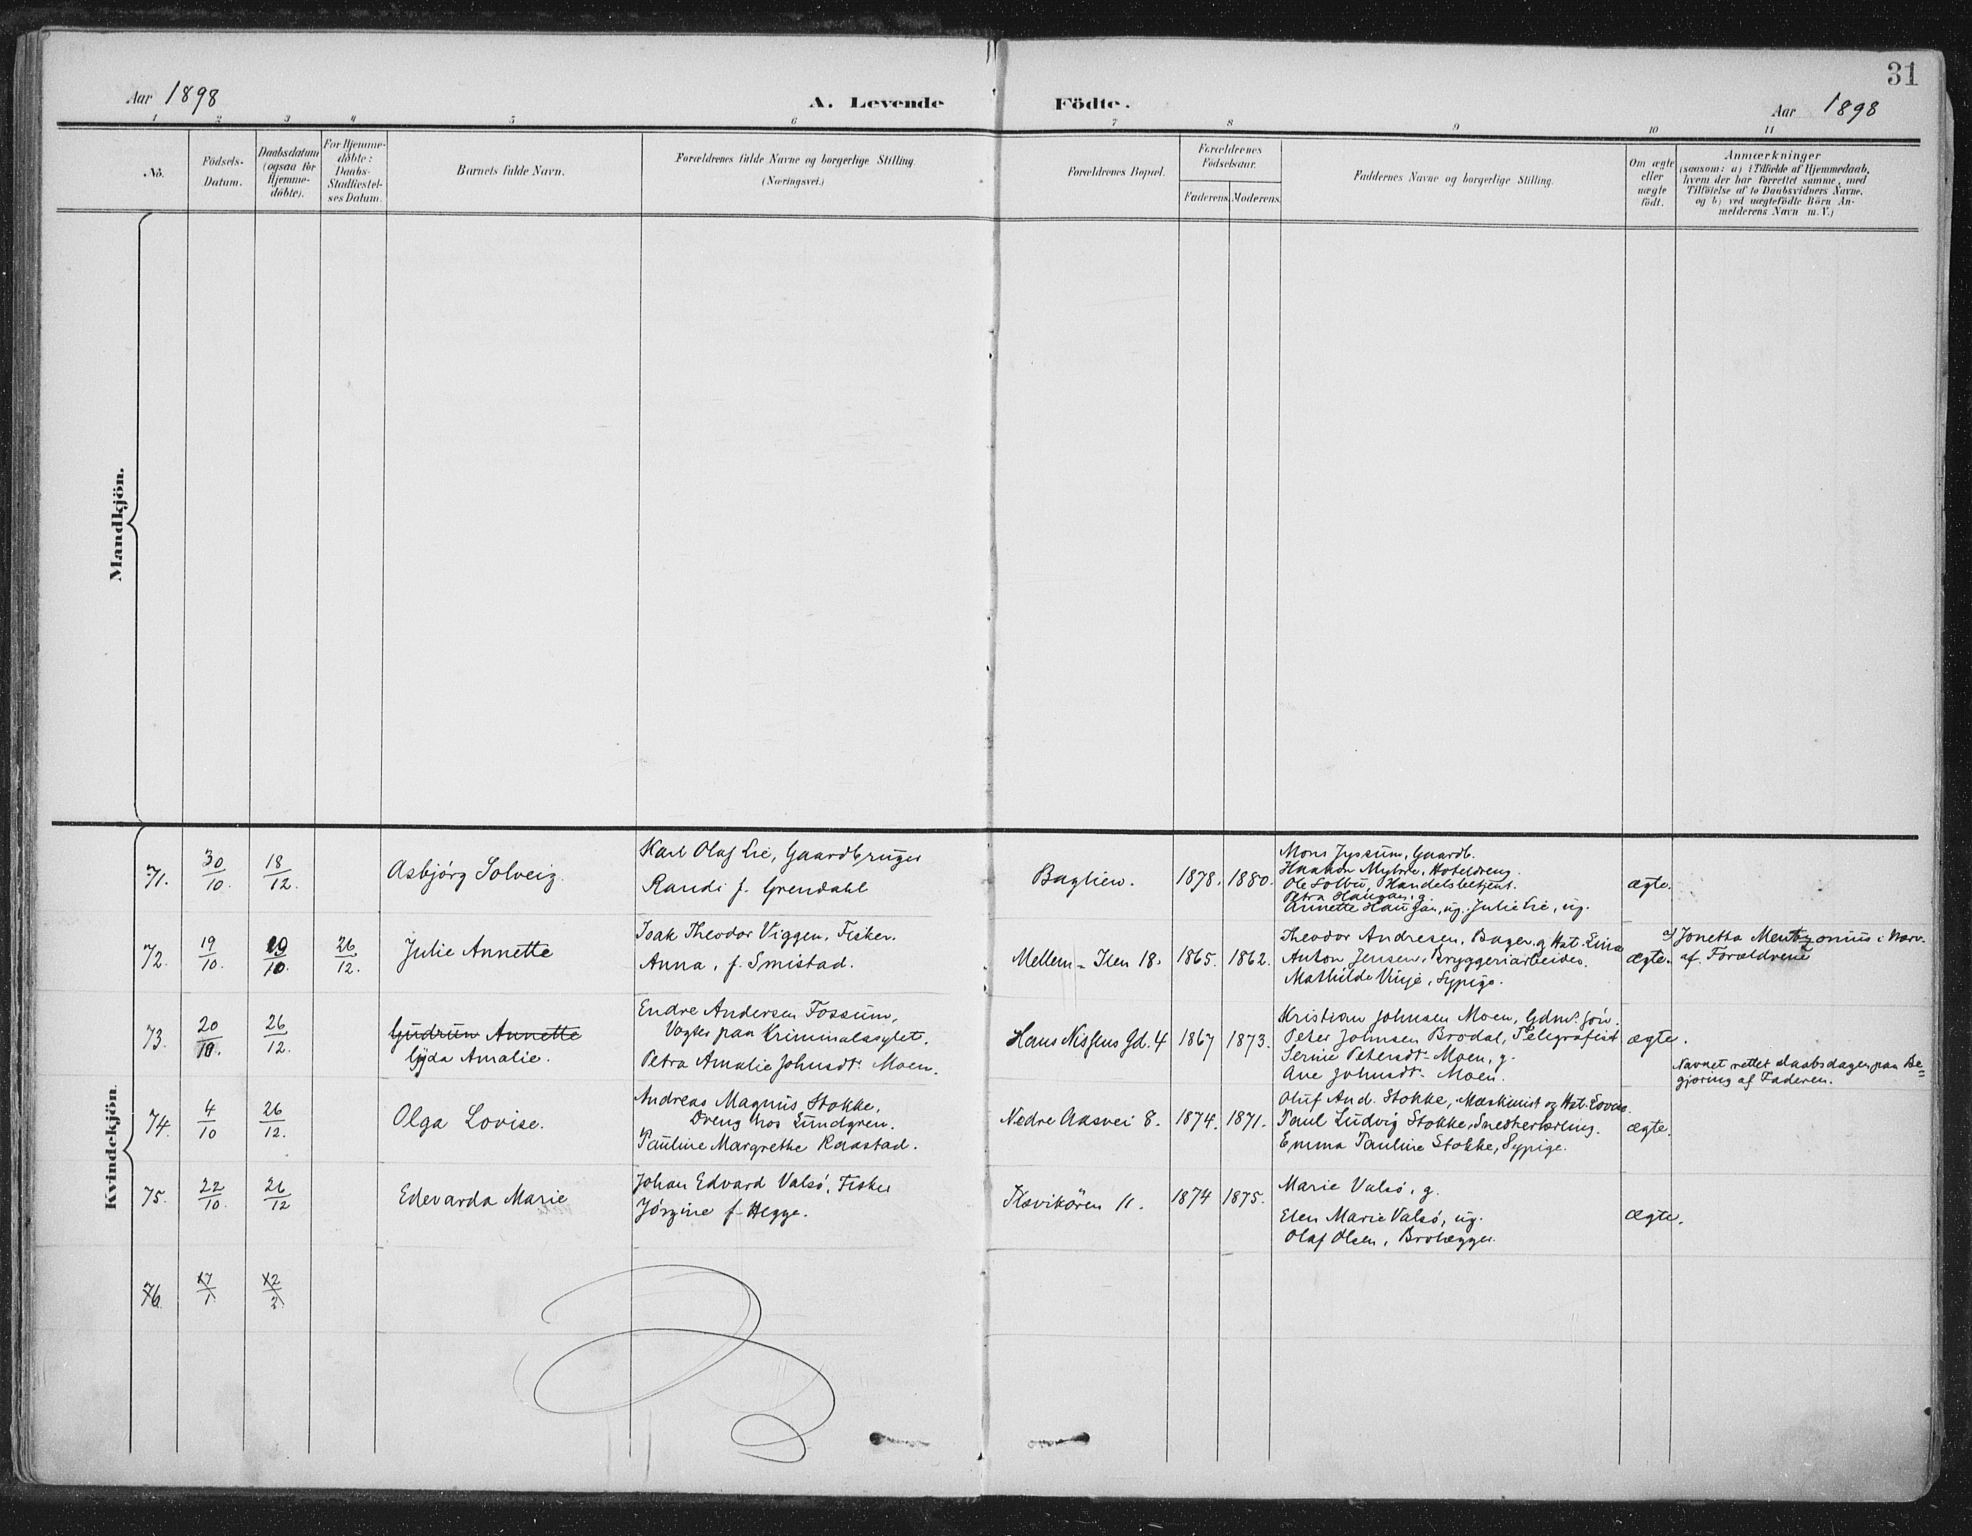 31
Aar 1898
A. Levende Födte.
Aar 1898
1 2 3 4 5 6 7 8 9 10 11
No.
Födsels-
Datum.
Daabsdatum
(ogsaa for
Hjemme-
döbte).
For Hjemme-
döbte:
Daabs-
Stadfæstel-
ses Datum.
Barnets fulde Navn.
Forældrenes fulde Navne og borgerlige Stilling.
(Næringsvei.)
Forældrenes Bopæl.
Forældrenes
Födselsaar.
Faderens. Moderens.
Faddernes Navne og borgerlige Stilling.
Om ægte
eller
uægte
födt.
Anmærkninger
(saasom: a) i Tilfælde af Hjemmedaab,
hvem der har forrettet samme, med
Tilföielse af to Daabsvidners Navne,
og b) ved uægtefödte Börn An-
melderens Navn m. V.)
Mandkjön.
Kvindekjön
71.
30/10.
18/12.
Asbjørg Solveig
Karl Olaf Lie, Gaardbruger
Randi f. Grendahl
Baglien.
1878.
1880.
Mons Jyssum, Gaardb.
Haakon Myhre, Hoteldreng.
Ole Solbu, Handelsbetjent.
Petra Haugan, g.
Annette Haugan, ug. Julie Lie, ug.
ægte.
72.
19/10.
29/10.
26/12.
Julie Annette
Isak Theodor Viggen, Fisker.
Anna, f. Smistad.
Mellem-Ilen 18.
1865.
1862.
Theodor Andresen, Bager og Hst. Lina
Anton Jensen, Bryggeriarbeider.
Mathilde Vinje, Sypige.
ægte.
a) Jonetta Mentzonius i Nærv.
af Forældrene
73.
20/10.
26/12.
Gudrun Annette
Gyda Amalie.
Endre Andersen Fossum,
Vogter paa Kriminalasylet.
Petra Amalie Johnsdt. Moen.
Hans Nissens Gd. 4
1867
1873.
Kristian Johnsen Moen, Gdms. søn.
Peter Johnsen Brodal, Telegrafist
Serine Petersdt. Moen, g.
Ane Johnsdt. Moen.
ægte.
Navnet rettet daabsdagen paa Be=
gjøring af Faderen.
74.
4/10
26/12.
Olga Lovise.
Andreas Magnus Stokke,
Dreng hos Lundgren.
Pauline Margrethe Raastad.
Nedre Aasvei 8.
1874.
1871.
Oluf And. Stokke, Maskinist og Hst. Lovise
Paul Ludvig Stokke, Snedkerlærling.
Emma Pauline Stokke, Sypige.
ægte.
75.
22/10.
26/12
Edevarda Marie
Johan Edvard Valsø, Fisker
Jørgine f. Hegge.
Ilsvikören 11.
1874
1875.
Marie Valsø, g.
Elen Marie Valsø, ug.
Olaf Olsen, Brolægger.
ægte.
76
17/1
12/2